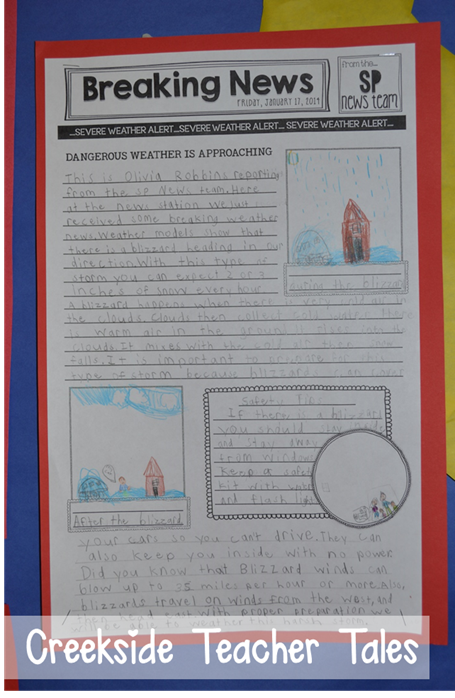 Breaking News
FRIDAY, JANUARY 17, 2014
from the...
SP
news team
...SEVERE WEATHER ALERT...SEVERE WEATHER ALERT... SEVERE WEATHER ALERT...
DANGEROUS WEATHER IS APPROACHING
This is Olivia Robbins reporting
from the SP News team. Here
at the news station we just
received some breaking weather
news. Weather models show that
there is a blizzard heading in our
direction. With this type of
storm you can expect 2 or 3
inches of snow every hour
A blizzard happens when there is very cold air in
the clouds. Clouds then collect cold
is warm air in the ground it rises into the
clouds. It mixes with the cold air then
falls. It is important to prepare for this
type of storm because blizzards can cover
during the blizzard
After the blizzard
Safety Tips
If there is a blizzard
you should stay inside
and stay away
from window
Keep a safe
kit with
and flash light
your cars so you can't drive. They can
also keep you inside with no power.
Did you know that Blizzard winds can
blow up to 35 miles per hour or more. Also,
blizzards travel on winds from the west, and
with proper preparation we
weather this harsh storm.
Creekside Teacher Tales